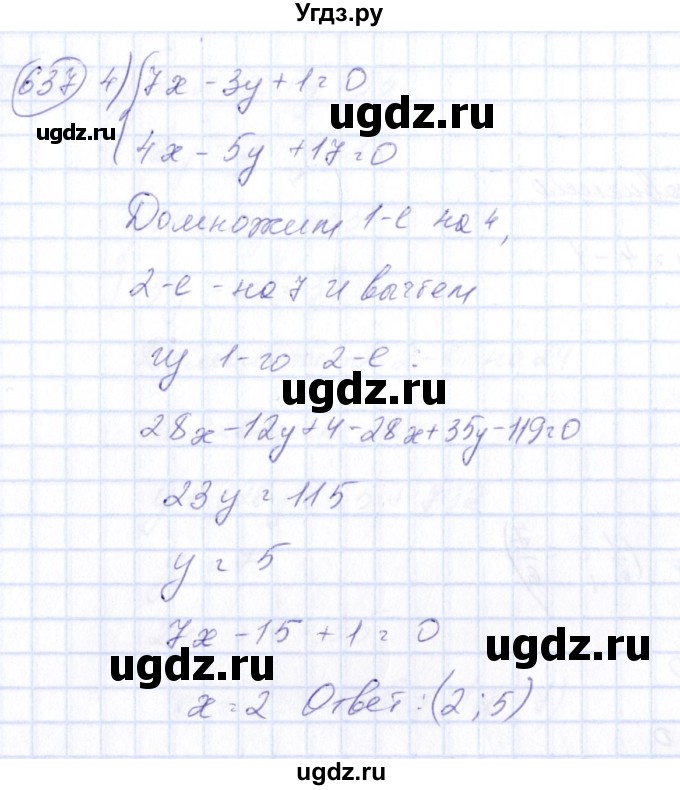 Угдз.ру
637 4) { 7x - 3y + 1 = 0
ugdz.ru
ugdz.ru
4x - 5y + 17 = 0
Домножим 1-е на 4,
2-е - на 7 и вычтем
из 1-го 2-е :
ugdz.ru
28x - 12y + 4 - 28x + 35y - 119 = 0
23y = 115
y = 5
7x - 15 + 1 = 0
ugdz.ru
ugdz.ru
x = 2 Ответ : (2 ; 5)
ugdz.ru